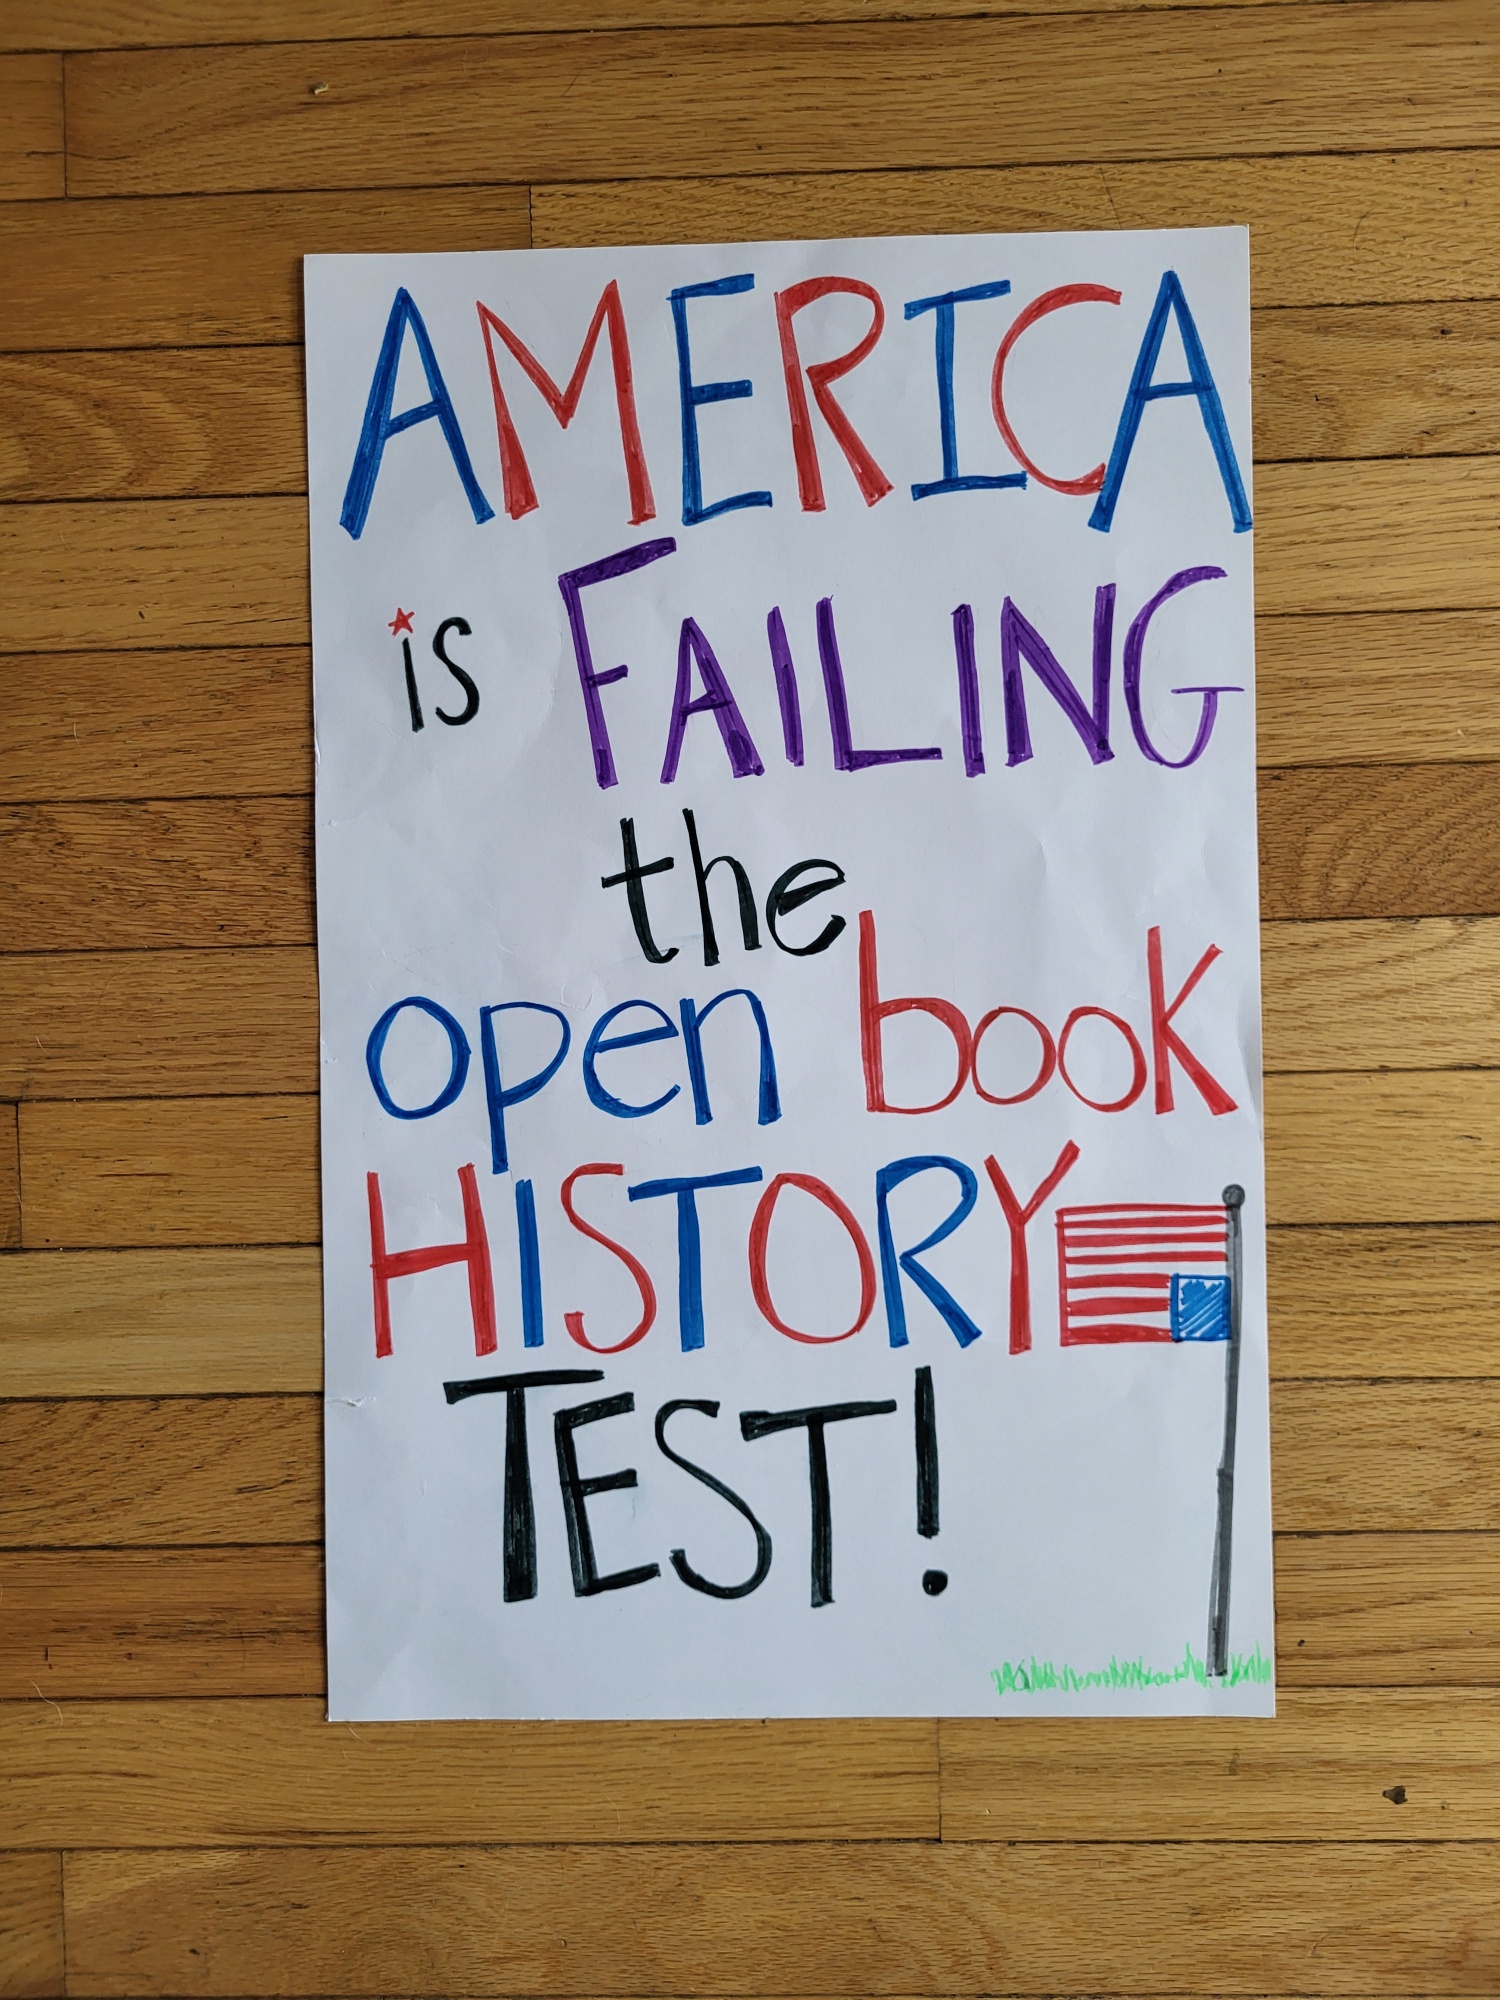 AMERICA
is FAILING
the
open book
HISTORY
TEST!